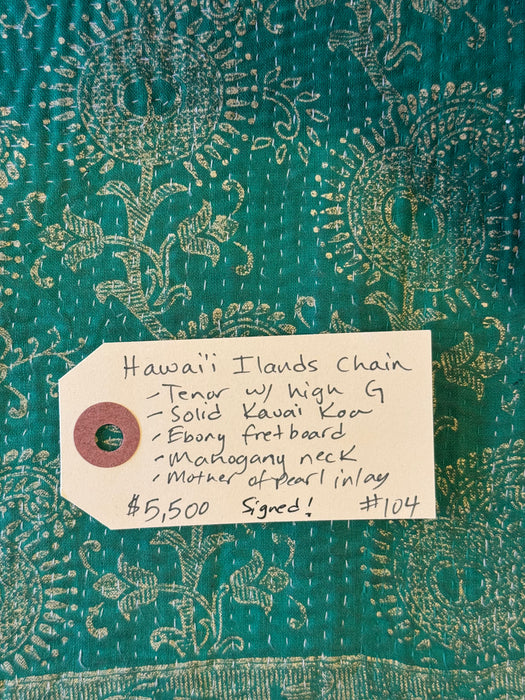 Hawai'i Ilands Chain
- Tenor w/ high G
- Solid Kauai Koa
- Ebony fretboard
- Mahogany neck
- Mother of pearl inlay
$5,500 Signed! #104